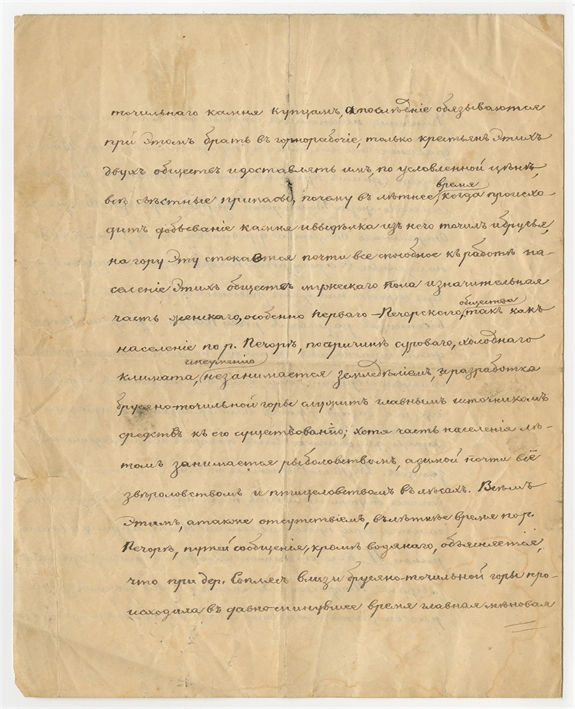 точильнаго камня купцамъ, а последніе обязываются
при этомъ брать въ горнорабочіе, только крестьянъ этихъ
двухъ обществъ и доставлять имъ, по условленной ценѣ,
всѣ съѣстные припасы, почему въ летнее, время когда происхо-
дитъ добываніе камня и выдѣлка изъ него точилъ и брусья,
на гору эту стекается почти все способное къ работѣ на-
селеніе этихъ обществъ мужскаго пола и значительная
часть женскаго, особенно перваго - Печорскаго, общества такъ какъ
населеніе по р. Печорѣ, по причинѣ суроваго, холоднаго
климата, не занимается земледѣліемъ, и разработка
брусяно-точильной горы служитъ главнымъ источникомъ
средствъ къ его существованію; хотя часть населенія лѣ-
томъ занимается рыболовствомъ, а зимой почти всё
звѣроловствомъ и птицеловствомъ въ лѣсахъ. Всѣмъ
этимъ, а также отсутствіемъ, въ лѣтнѣе время по р.
Печорѣ, путей сообщенія, кромѣ водянаго, объясняется,
что при дер. Соплясъ вблизи брусяно-точильной горы про-
исходила въ давно-минувшее время главная мѣновая